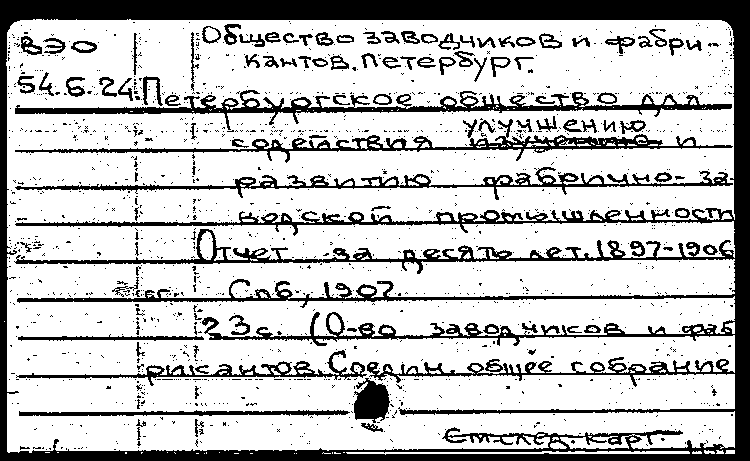 ВЭО
Общество заводчиков и фабри-
кантов. Петербург.
54.6.24. Петербургское общество для
улучшению
содействия изучению и
развитию фабрично-за
водской промышленности
Отчет за десять лет. 1897-1906
бг. Спб, 1907.
23с. (О-во заводчиков и фаб
рикантов. Соедин. общее собрание
См. след. карт.